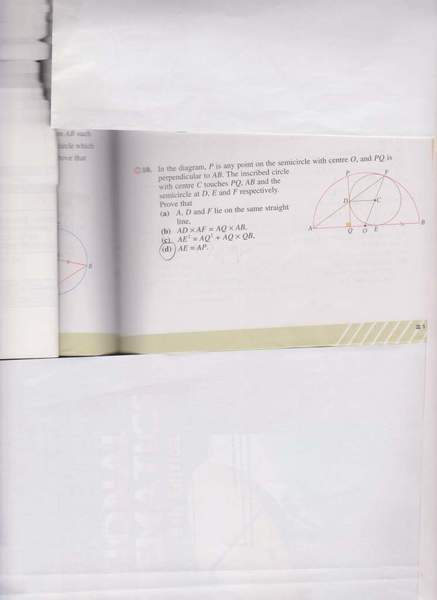 AB such
circle which
rove that
B
10. In the diagram, P is any point on the semicircle with centre O, and PQ is
perpendicular to AB. The inscribed circle
with centre C touches PQ, AB and the
semicircle at D, E and F respectively.
Prove that
(a) A, D and F lie on the same straight
line,
(b) AD × AF = AQ × AB,
(c) AE² = AQ² + AQ × QB,
(d) AE = AP.
P F
D C
A Q O E B